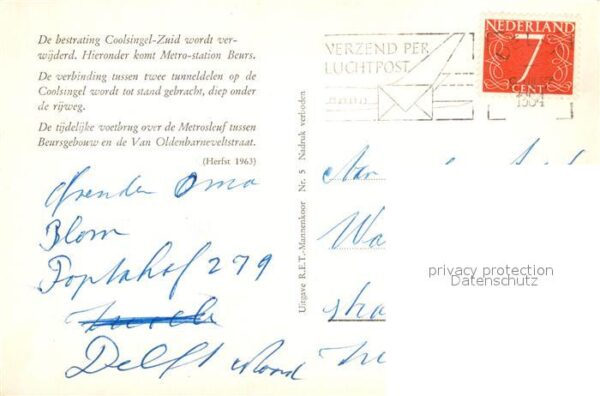 De bestrating Coolsingel-Zuid wordt ver-
wijderd. Hieronder komt Metro-station Beurs.
De verbinding tussen twee tunneldelen op de
Coolsingel wordt tot stand gebracht, diep onder
de rijweg.
De tijdelijke voetbrug over de Metrosleuf tussen
Beursgebouw en de Van Oldenbarneveltstraat.
(Herfst 1963)
Oma
Blom
Poptahof 279
Delft Noord
Uitgave R.E.T.-Mannenkoor Nr. 5 Nadruk verboden
VERZEND PER
LUCHTPOST
NEDERLAND
7
CENT
1964
Aan
Wa
privacy protection
Datenschutz